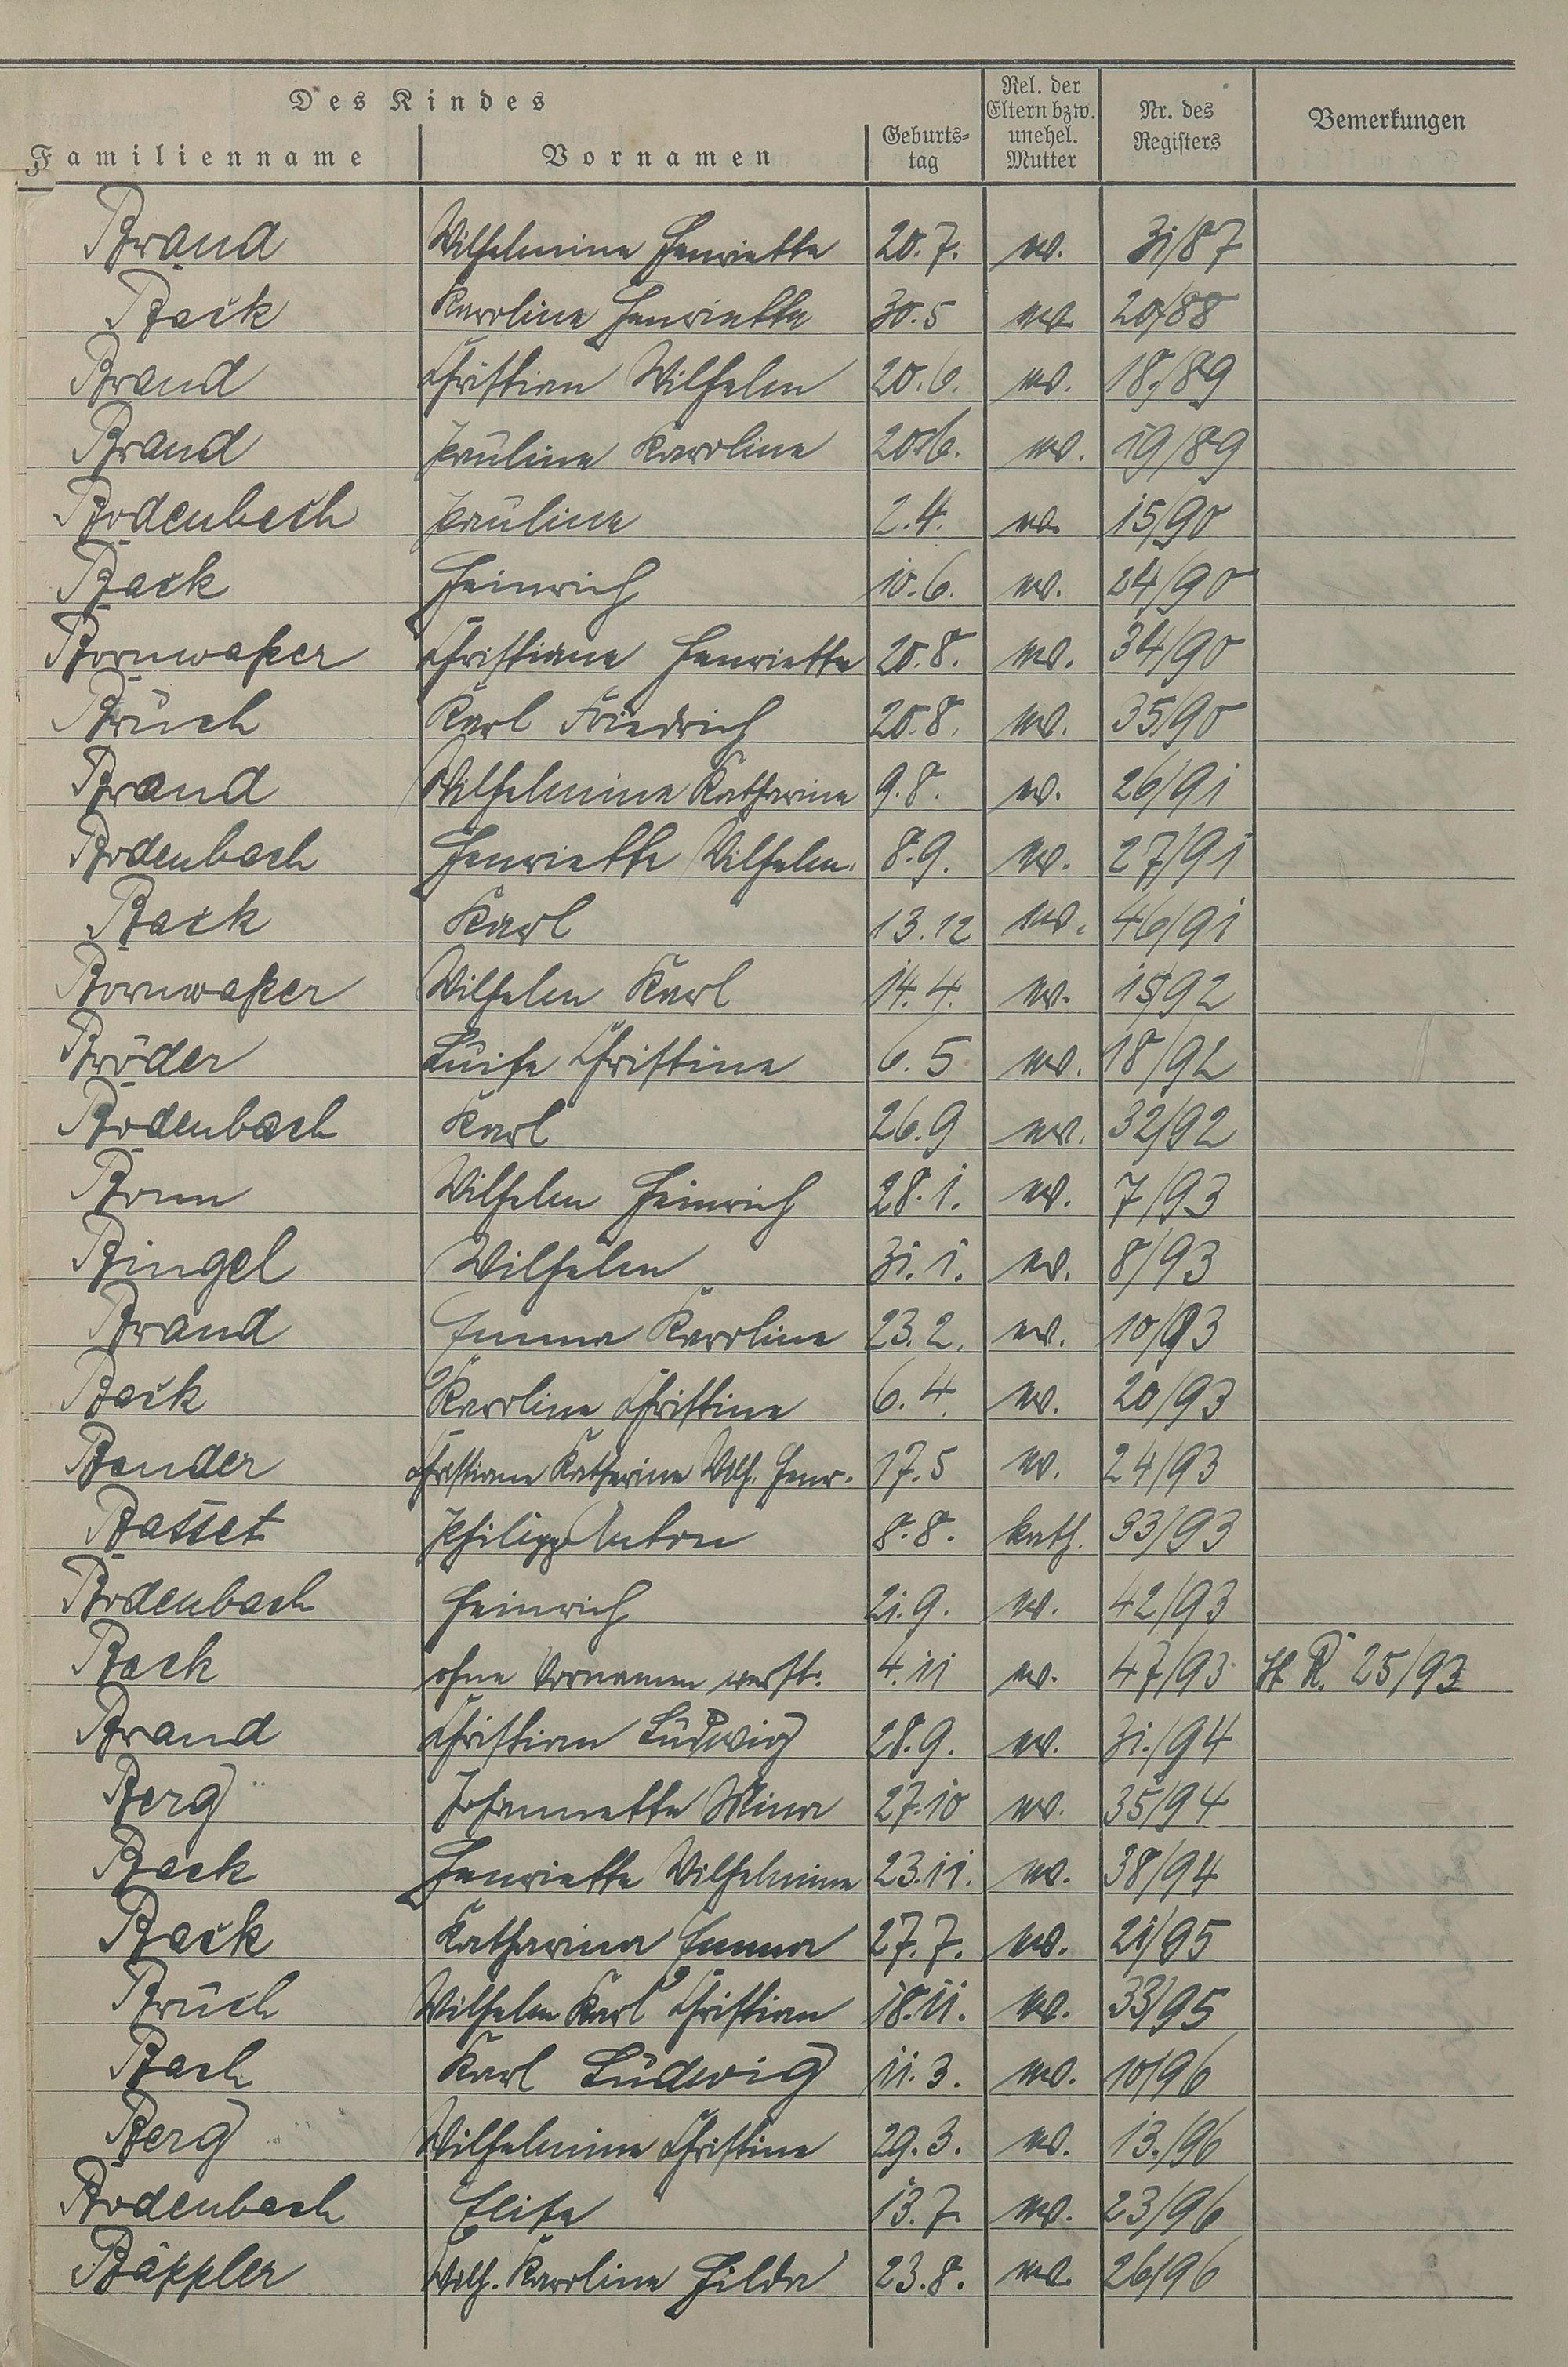 Des Kindes
Familienname | Vornamen | Geburts-tag | Rel. der Eltern bzw. unehel. Mutter | Nr. des Registers | Bemerkungen
Brand | Wilhelmine Henriette | 20.7. | ev. | 31/87
Back | Karoline Henriette | 30.5 | ev. | 20/88
Brand | Christian Wilhelm | 20.6. | ev. | 18/89
Brand | Pauline Karoline | 20.6. | ev. | 19/89
Bodenbach | Pauline | 2.4. | ev. | 15/90
Back | Heinrich | 10.6. | ev. | 24/90
Bornwaßer | Christiane Henriette | 20.8. | ev. | 34/90
Bruch | Karl Friedrich | 20.8. | ev. | 35/90
Brand | Wilhelmine Katharine | 9.8. | ev. | 26/91
Bodenbach | Henriette Wilhelm. | 8.9. | ev. | 27/91
Back | Karl | 13.12 | ev. | 46/91
Bornwaßer | Wilhelm Karl | 14.4. | ev. | 15/92
Bröder | Luise Christine | 6.5 | ev. | 18/92
Bodenbach | Karl | 26.9 | ev. | 32/92
Bonn | Wilhelm Heinrich | 28.1. | ev. | 7/93
Bingel | Wilhelm | 31.1. | ev. | 8/93
Brand | Emma Karoline | 23.2. | ev. | 10/93
Back | Karoline Christine | 6.4. | ev. | 20/93
Bender | Christiane Katharine Wilh. Henr. | 17.5 | ev. | 24/93
Basset | Philipp Anton | 8.8. | kath. | 33/93
Bodenbach | Heinrich | 21.9. | ev. | 42/93
Back | ohne Vornamen verst. | 4.11 | ev. | 47/93 | St. R. 25/93
Brand | Christian Ludwig | 28.9. | ev. | 31./94
Berg | Johannette Mina | 27.10 | ev. | 35/94
Back | Henriette Wilhelmine | 23.11. | ev. | 38/94
Back | Katharina Emma | 27.7. | ev. | 21/95
Bruch | Wilhelm Karl Christian | 18.11. | ev. | 33/95
Bach | Karl Ludwig | 11.3. | ev. | 10/96
Berg | Wilhelmine Christine | 29.3. | ev. | 13./96
Bodenbach | Elise | 13.7. | ev. | 23/96
Bäppler | Wilh. Karoline Hilda | 23.8. | ev. | 26/96